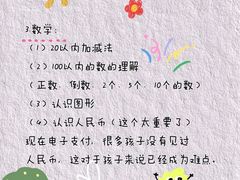 3.数学：
（1）20以内加减法
（2）100以内的数的理解
（正数、倒数、2个、5个、10个的数）
（3）认识图形
（4）认识人民币（这个太重要了）
现在电子支付，很多孩子没有见过
人民币，这对于孩子来说已经成为难点。